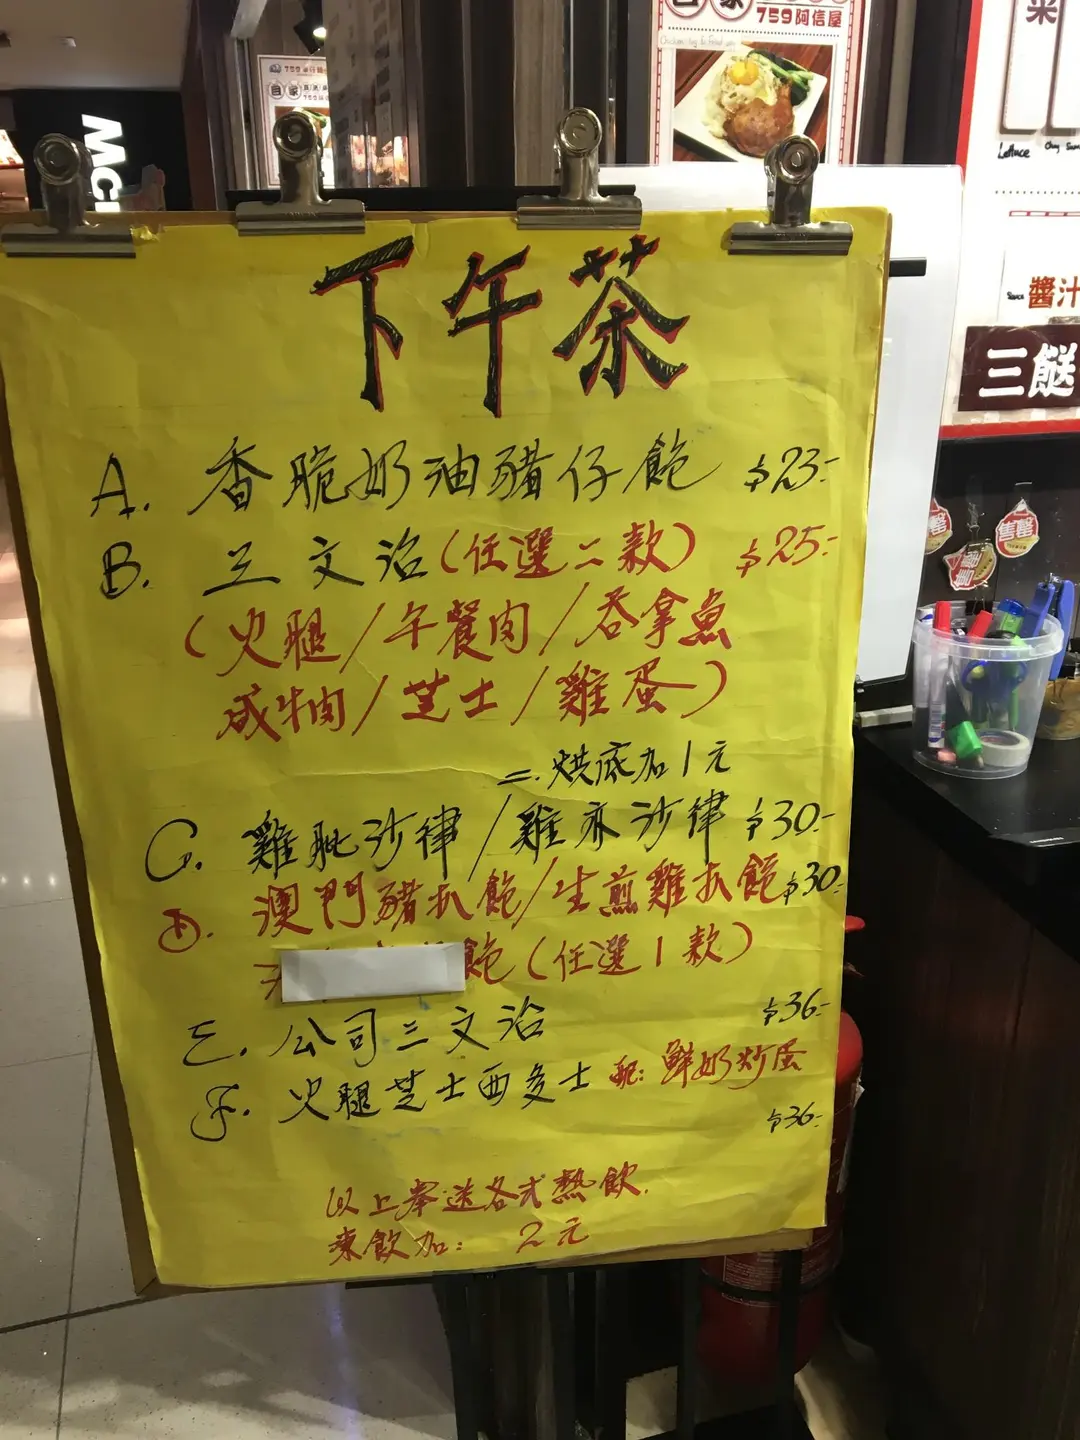 759阿信屋
McC
Lettuce
醬汁
三餸
售罄
售罄
下午茶
A. 香脆奶油豬仔飽 $23-
B. 三文治(任選二款) $25-
(火腿/午餐肉/吞拿魚
咸牛肉/芝士/雞蛋)
=.烘底加1元
C. 雞肶沙律/雞亦沙律 $30-
D. 澳門豬扒飽/生煎雞扒飽$30-
飽(任選1款)
E. 公司三文治 $36-
F. 火腿芝士西多士 配:鮮奶炒蛋
$36-
以上奉送各式熱飲.
凍飲加: 2元